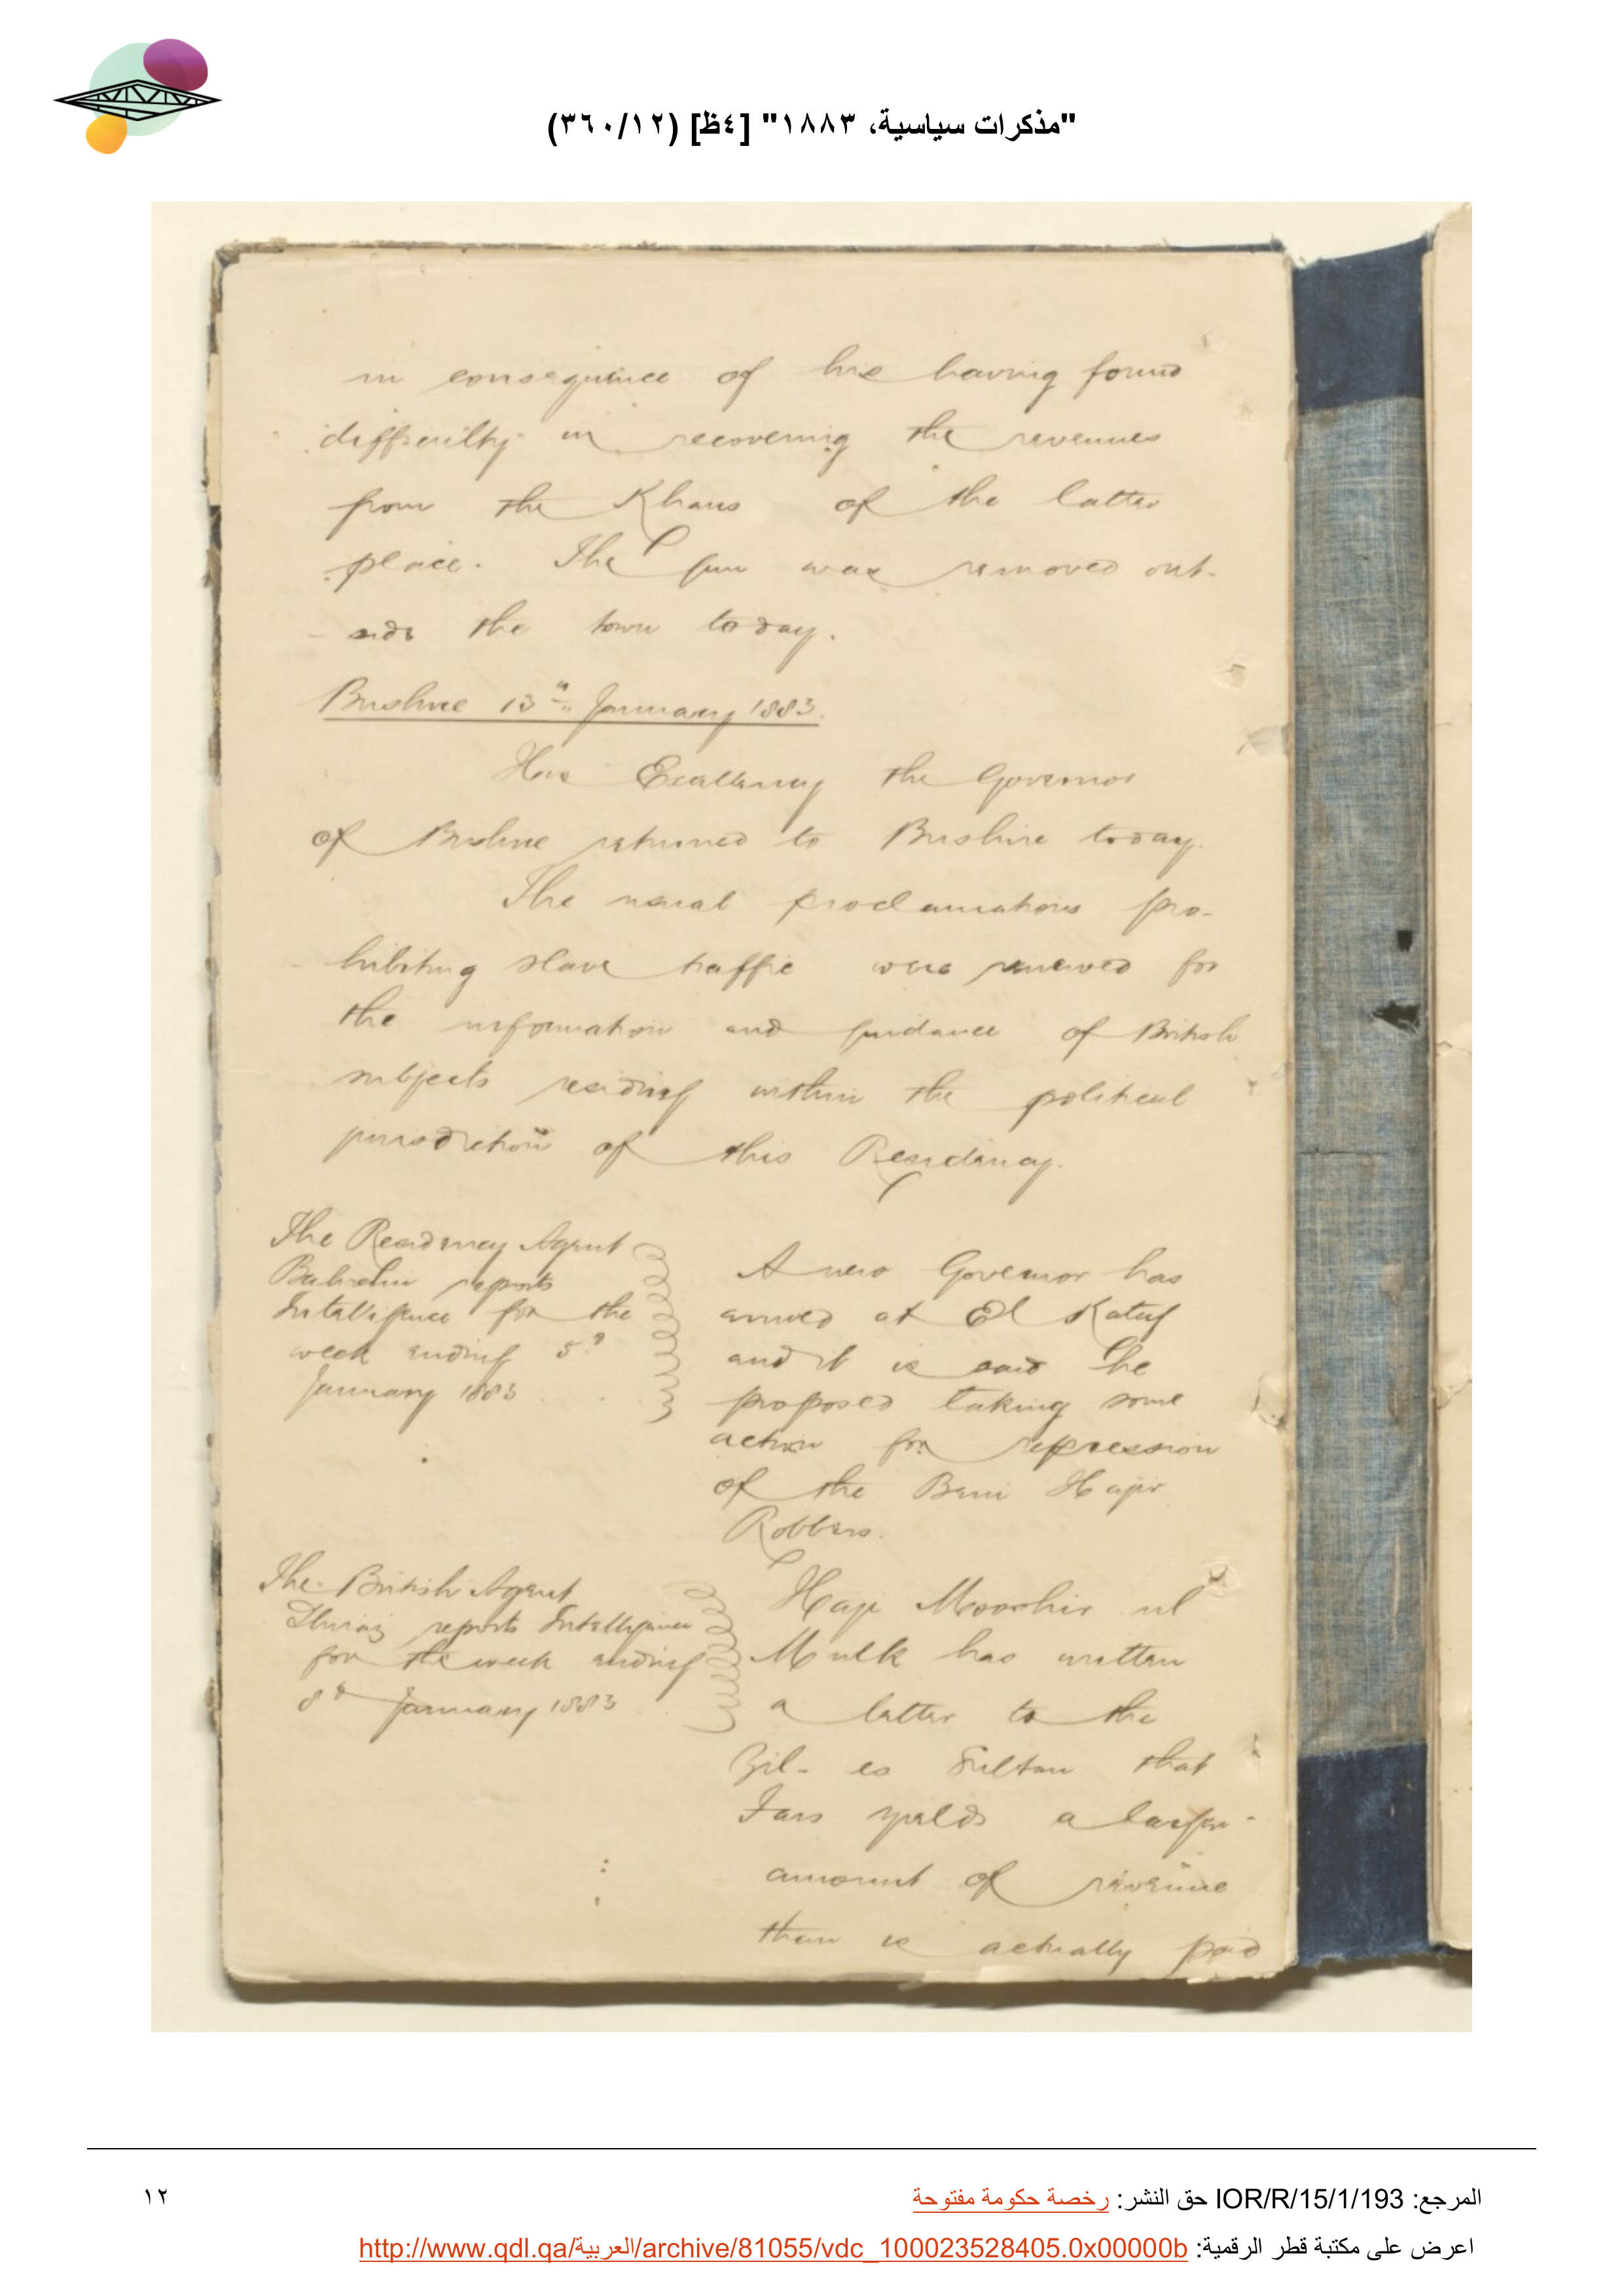 "مذكرات سياسية، ١٨٨٣" [٤ظ] (٣٦٠/١٢)
in consequence of his having found
difficulty in recovering the revenues
from the Khans of the latter
place. The gun was removed out-
side the town today.
Bushire 13th January 1883.
His Excellency the Governor
of Bushire returned to Bushire today.
The usual proclamations pro-
hibiting slave traffic were renewed for
the information and guidance of British
subjects residing within the political
jurisdiction of this Residency.
The Residency Agent
Bahrein reports
Intelligence for the
week ending 5th
January 1883
A new Governor has
arrived at El Katif
and it is said he
proposed taking some
action for repression
of the Beni Hajir
Robbers.
The British Agent
Shiraz reports Intelligence
for the week ending
8th January 1883
Haji Mooshir ul
Mulk has written
a letter to the
Zil- es Sultan that
Fars yields a larger
amount of revenue
than is actually paid
المرجع: IOR/R/15/1/193 حق النشر: رخصة حكومة مفتوحة
١٢
اعرض على مكتبة قطر الرقمية: http://www.qdl.qa/العربية/archive/81055/vdc_100023528405.0x00000b